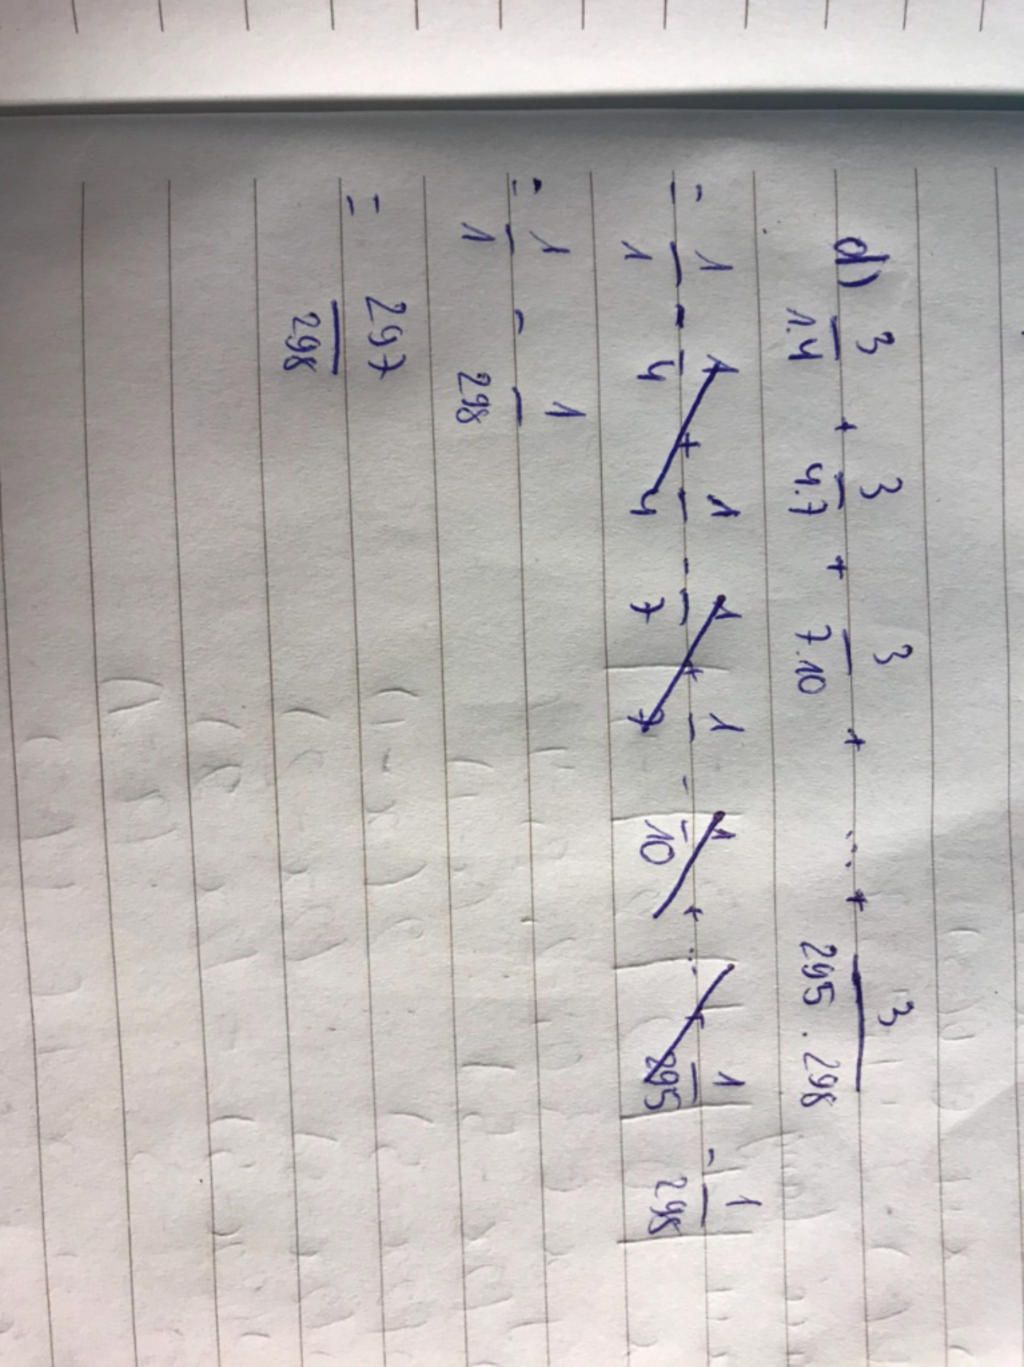 d) 3/1.4 + 3/4.7 + 3/7.10 + ... + 3/295.298
= 1/1 - 1/4 + 1/4 - 1/7 + 1/7 - 1/10 + ... + 1/295 - 1/298
= 1/1 - 1/298
= 297/298